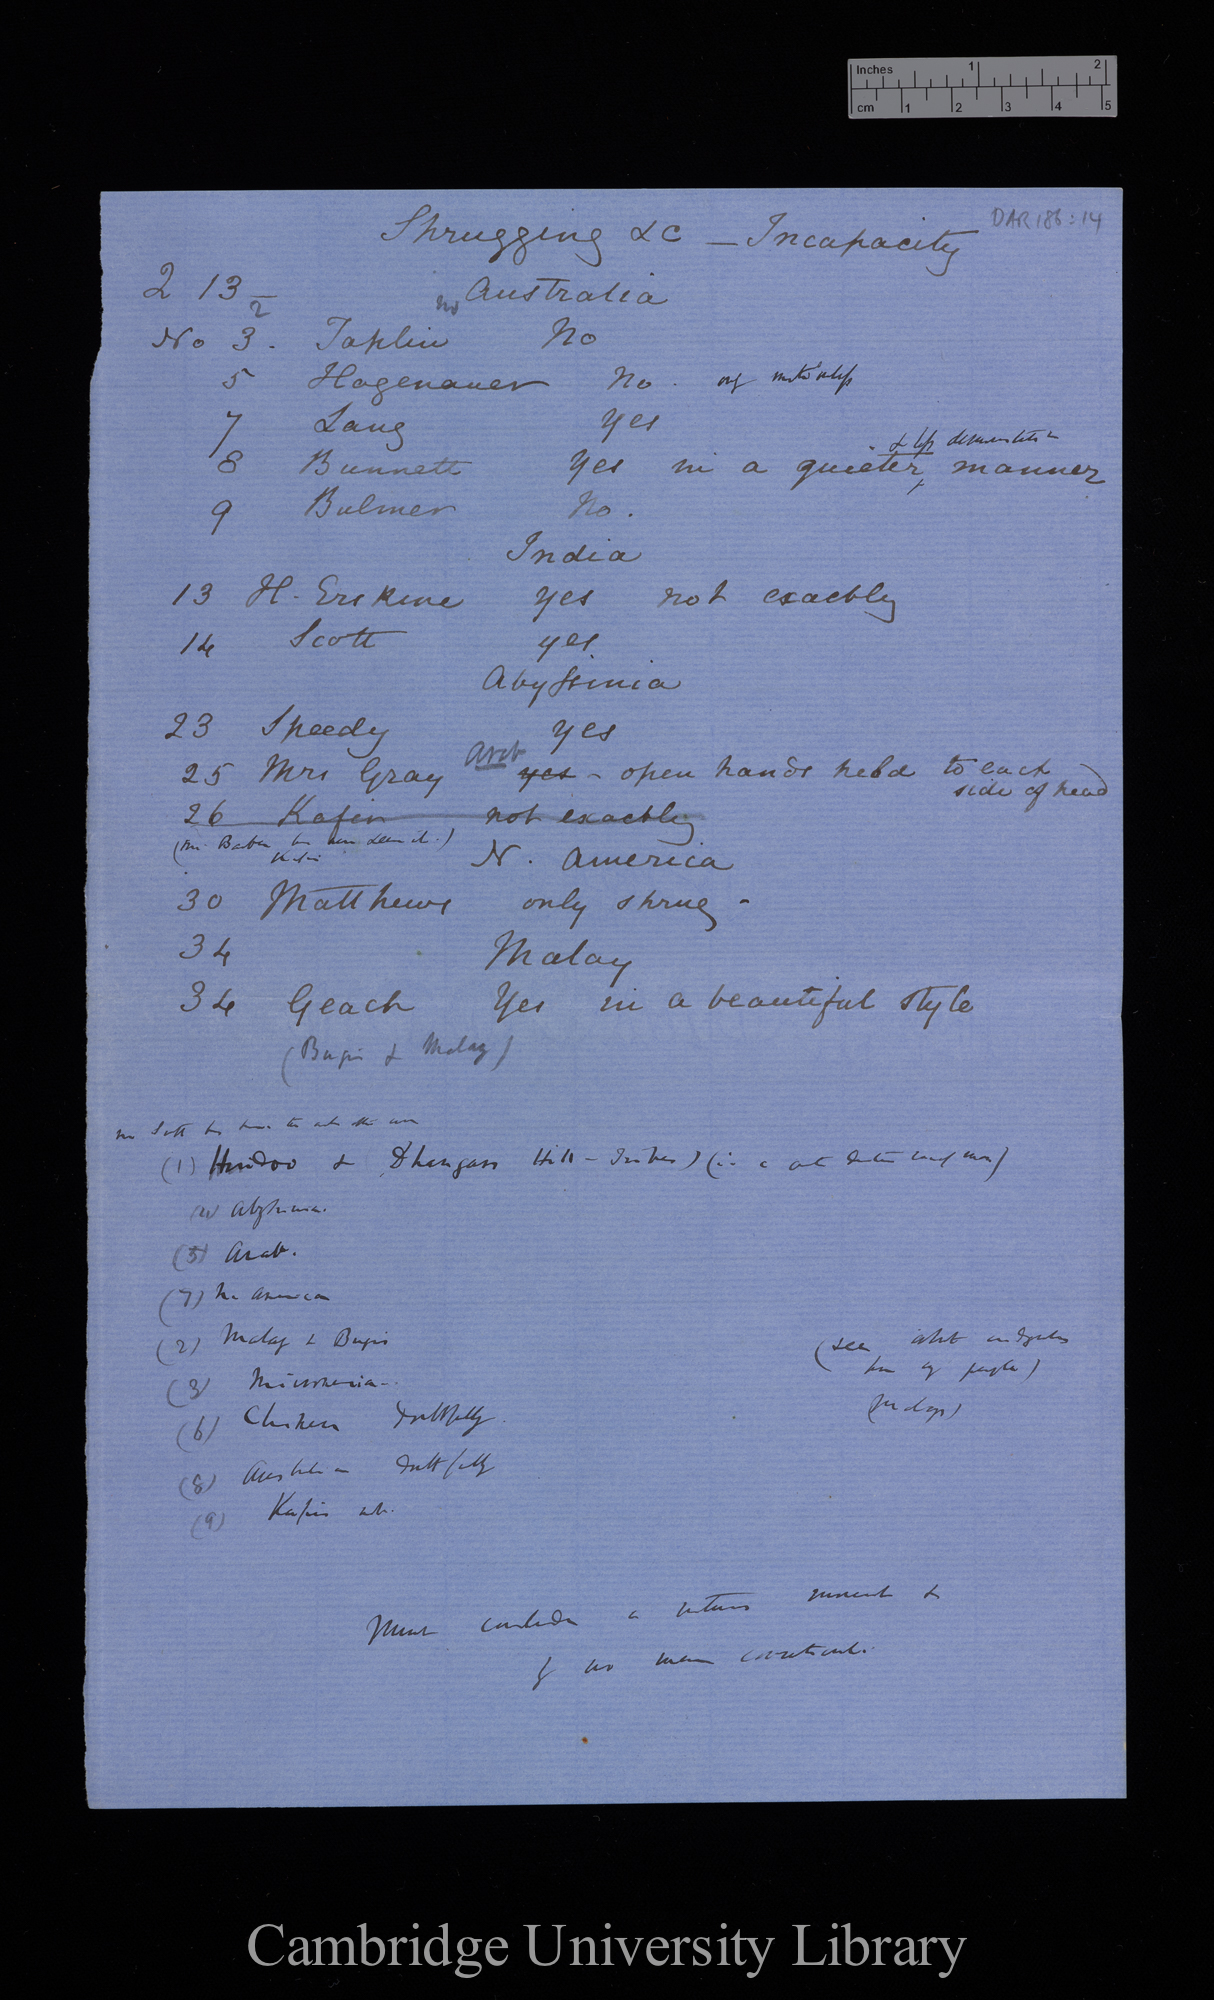 Inches 1 2
cm 1 2 3 4 5
DAR 186:14
Shrugging &c – Incapacity
2 13 –
2
no Australia
No 3. Taplin No
5 Hagenauer No.
7 Lang Yes
& less demonstrative
8 Bunnett Yes in a quieter, manner
9 Bulmer No.
India
13 H. Erskine yes not exactly
14 Scott yes
Abyssinia
23 Speedy yes
Arab
25 Mrs Gray yes – open hands held to each
side of head
26 Kafir not exactly
(Mr. Barber has never seen it.)
Kafir
N. America
30 Matthews only shrug –
34 Malay
34 Geach Yes in a beautiful style
(Bugis & Malay)
Mr Scott has
(1) Hindoo & Dhangars Hill-Tribes)
Abyssinia.
(5) Arab.
(7) N. American
(2) Malay & Bugis
(see about
(3) Micronesia –.
(Malays)
(6) Chinese doubtfully.
(8) Australian doubtfully
(9) Kafirs not.
Must consider a natural movement &
of no mean
Cambridge University Library